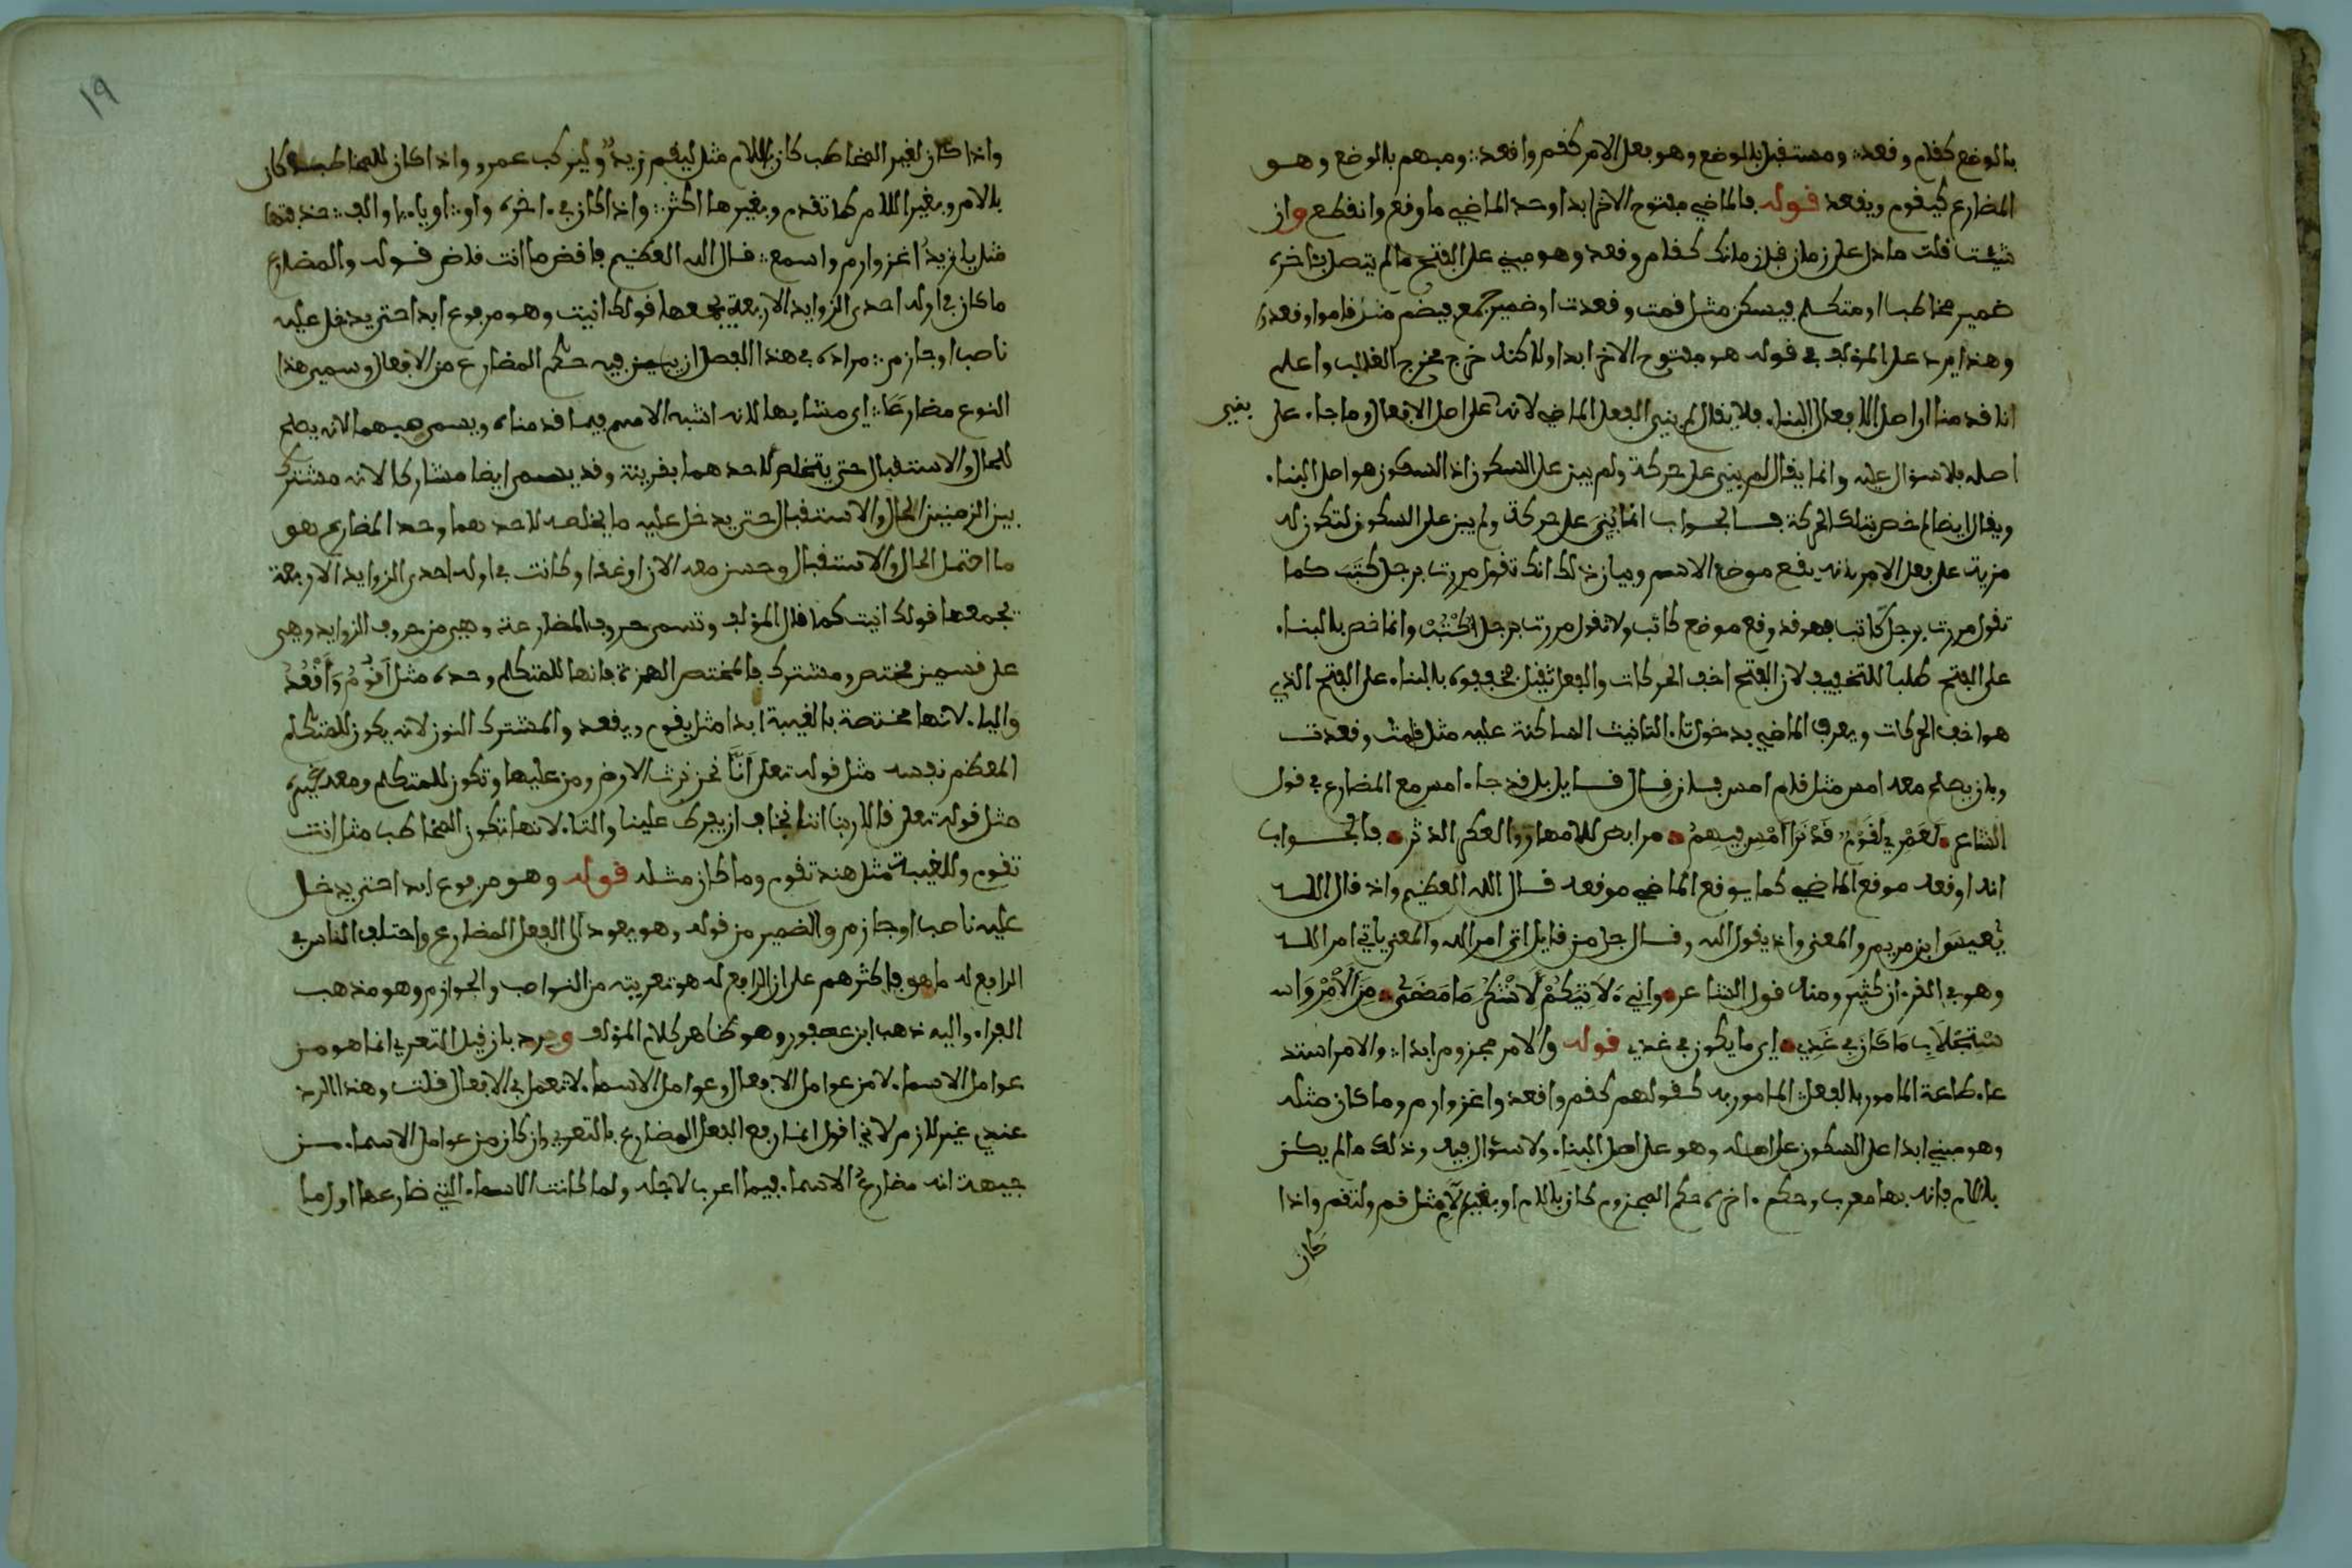 بالوضع كقام وقعد ومستقبل بالوضع وهو فعل الامر كقم واقعد ومبهم بالوضع وهو
المضارع كيقوم ويقعد قوله فالماضي مفتوح الاخر ابدا وحد الماضي ما وقع وانقطع وان
شئت قلت ما دل على زمان قبل زمانك كقام وقعد وهو مبني على الفتح ما لم يتصل بئاخره
ضمير مخاطب او متكلم فيسكن مثل قمت وقعدت او ضمير جمع فيضم مثل قاموا وقعدوا
وهذا يرد على المؤلف في قوله هو مفتوح الاخر ابدا ولاكنه خرج مخرج الغالب واعلم
انا قدمنا ان اصل الافعال البناء فلا يقال لم بني الفعل الماضي لانه على اصل الافعال وما جاء على
اصله فلا سؤال عليه وانما يقال لم بني على حركة ولم يبن على السكون اذ السكون هو اصل البناء
ويقال ايضا لم خص بتلك الحركة فالجواب انما بُنِيَ على حركة ولم يبن على السكون لتكون له
مزية على فعل الامر بانه يقع موضع الاسم وبيان ذلك انك تقول مررت برجل كَتَبَ كما
تقول مررت برجل كاتب فهو قد وقع موضع كاتب ولا تقول مررت برجل اكْتُبْ وانما خص بالبناء
على الفتح طلبا للتخفيف لان الفتح اخف الحركات والفعل ثقيل فخففوه بالبناء على الفتح الذي
هو اخف الحركات ويعرف الماضي بدخول تاء التانيث الساكنة عليه مثل قامت وقعدت
وبان يصلح معه امس مثل قام امس فان قال قايل قد جاء امس مع المضارع في قول
الشاعر لَعَمْرِي لَقَوْمٌ قَدْ نَرَا أَمْسِ فيهِمُ مرابض للامهار والعكر الدثر فالجواب
انه اوقعه موقع الماضي كما يوقع الماضي موقعه قال الله العظيم واذ قال الله
يٰعيسى ابن مريم والمعنى واذ يقول الله وقال جل من قايل اتى امر الله والمعنى ياتي امر الله
وهو في القرءان كثير ومنه قول الشاعر واني لَآتِيَكُمْ لَاشْكُرَ مَا مَضَى مِنَ الْأَمْرِ وَاسْ
سْتِجْلَابِ مَا كَانَ فِي غَدِ اي ما يكون في غد قوله والامر مجزوم ابدا والامر استد
عاء طاعة المامور بالفعل المامور به كقولهم كقم واقعد واغز وارم وما كان مثله
وهو مبني ابدا على السكون على اصله وهو على اصل البناء ولا سؤال فيه وذلك ما لم يكن
باللام فانه بها معرب وحكم ءاخره حكم المجزوم كان باللام او بغير لام مثل قم ولتقم واذا
كان
بغير
١٩
واذا كان لغير المخاطب كان باللام مثل ليقم زيدٌ وليركب عمرو واذا كان للمخاطب كان
بالام وبغير اللام كما تقدم وبغيرها اكثر واذا كان في ءاخره واو او ياء او الف حذفتها
مثل يا زيدُ اغز وارم واسمع قال الله العظيم فاقض ما انت قاض قوله والمضارع
ما كان في اوله احدى الزوايد الاربعة يجمعها قولك انيت وهو مرفوع ابدا حتى يدخل عليه
ناصب او جازم مراده في هذا الفصل ان يبين فيه حكم المضارع من الافعال وسمي هذا
النوع مضارعًا اي مشابها لانه اشبه الاسم فيما قدمناه ويسمى مبهما لانه يصلح
للحال والاستقبال حتى يتخلص لاحدهما بقرينة وقد يسمى ايضا مشاركا لانه مشترك
بين الزمنين الحال والاستقبال حتى يدخل عليه ما يخلصه لاحدهما وحد المضارع هو
ما احتمل الحال والاستقبال وحسن معه الان او غدا وكانت في اوله احدى الزوايد الاربعة
يجمعها قولك انيت كما قال المؤلف وتسمى حروف المضارعة وهي من حروف الزوايد وهي
على قسمين مختص ومشترك فالمختص الهمزة فانها للمتكلم وحده مثل أَقُومُ وَأَقْعُدُ
والياء لانها مختصة بالغيبة ابدا مثل يقوم ويقعد والمشترك النون لانه يكون للمتكلم
المعظم نفسه مثل قوله تعلى اَنَّا نحن نرث الارض ومن عليها وتكون للمتكلم ومعه غيره
مثل قوله تعلى قالا ربنا اننا نخاف ان يفرط علينا والتاء لانها تكون للمخاطب مثل انت
تقوم وللغيبة مثل هند تقوم وما كان مثله قوله وهو مرفوع ابدا حتى يدخل
عليه ناصب او جازم والضمير من قوله وهو يعود الى الفعل المضارع واختلف الناس في
الرافع له ما هو فاكثرهم على ان الرافع له هو تعريته من النواصب والجوازم وهو مذهب
الفراء واليه ذهب ابن عصفور وهو ظاهر كلام المؤلف ورد بان قيل التعري انما هو من
عوامل الاسماء لا من عوامل الافعال وعوامل الاسماء لا تعمل في الافعال قلت وهذا الرد
عندي غير لازم لاني اقول انما رفع الفعل المضارع بالتعري وان كان من عوامل الاسماء من
جيهة انه مضارع الاسماء فيما اعرب لاجله ولما كانت الاسماء التي ضارعها اول ما